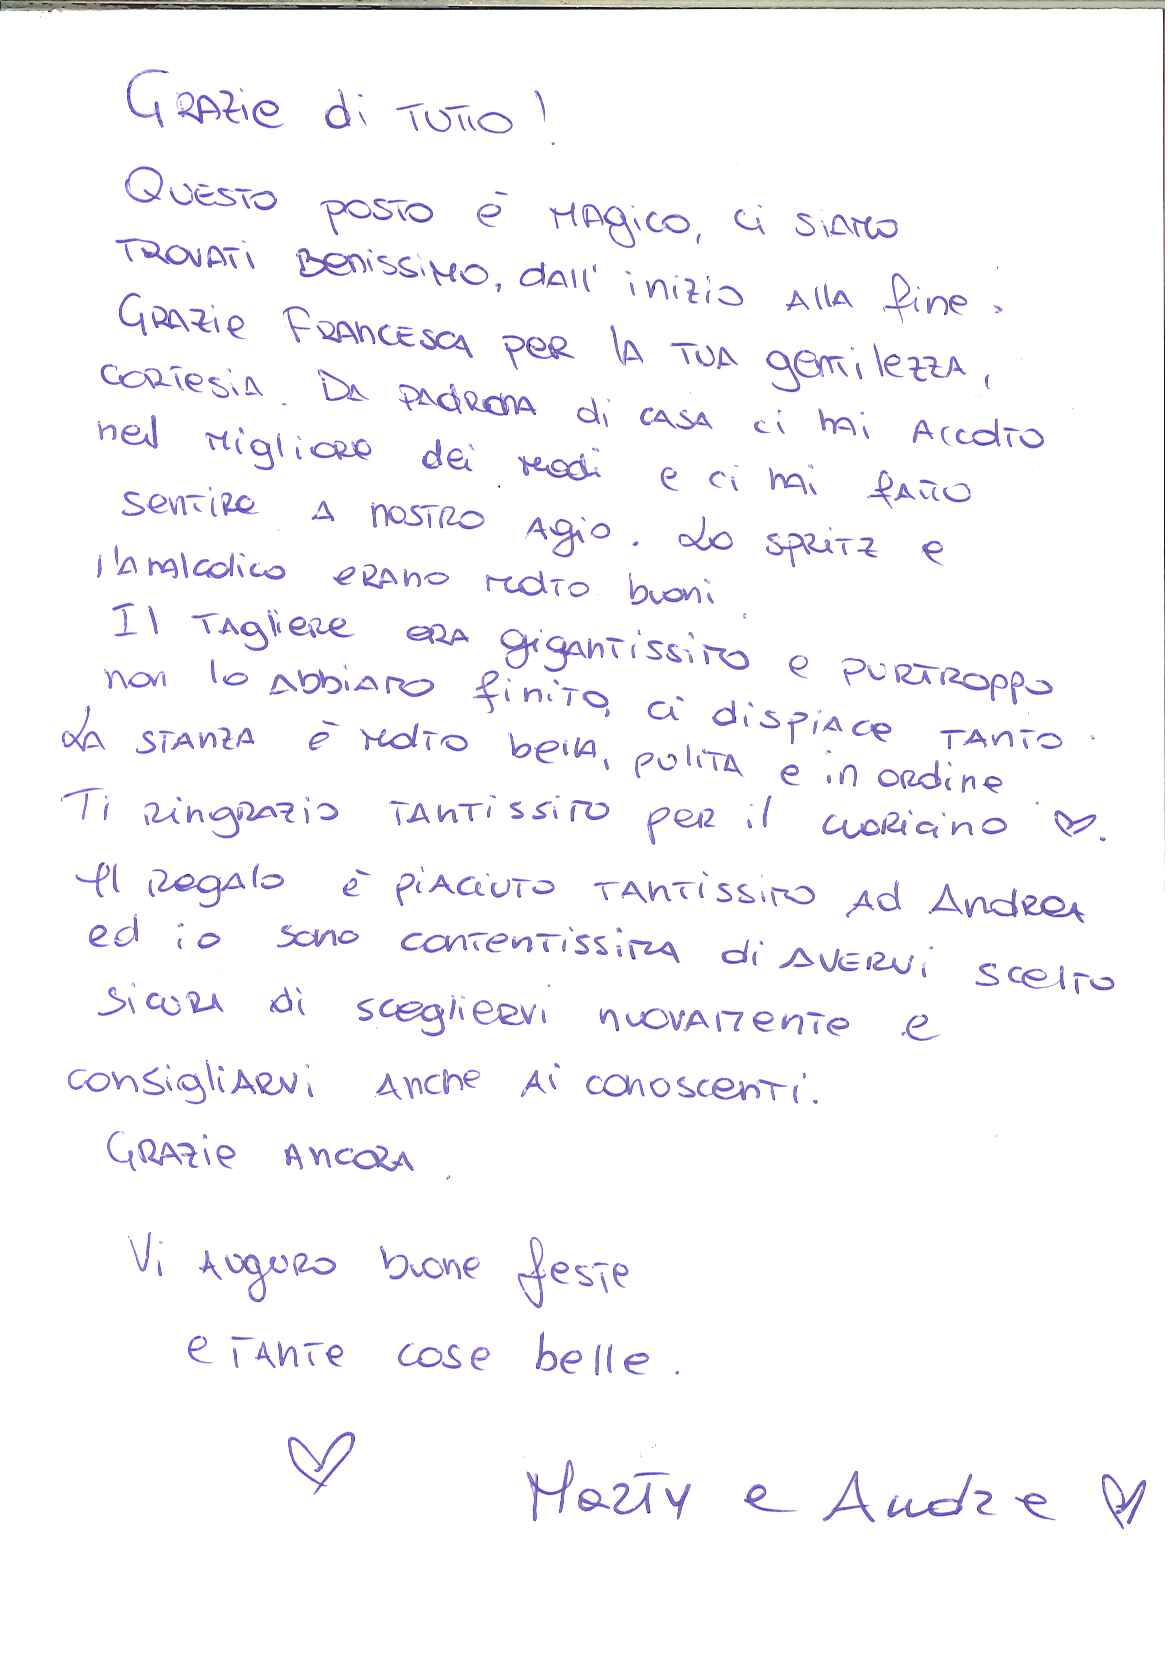 Grazie di tutto!
Questo posto è magico, ci siamo
trovati benissimo, dall'inizio alla fine.
Grazie Francesca per la tua gentilezza,
cortesia. Da padrona di casa ci hai accolto
nel migliore dei modi e ci hai fatto
sentire a nostro agio. Lo spritz e
l'analcolico erano molto buoni.
Il tagliere era gigantissimo e purtroppo
non lo abbiamo finito, ci dispiace tanto.
La stanza è molto bella, pulita e in ordine
Ti ringrazio tantissimo per il cuoricino ♡.
Il regalo è piaciuto tantissimo ad Andrea
ed io sono contentissima di avervi scelto
sicura di sceglievi nuovamente e
consigliarvi anche ai conoscenti.
Grazie ancora.
Vi auguro buone feste
e tante cose belle.
♡ Marty e Andre ♡